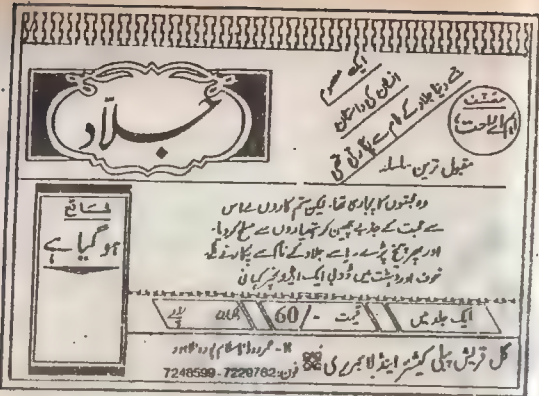 جلاد
ایک معصوم
انسان کی داستان
جسے دنیا جلاد کے نام سے پکارتی تھی
مصنف
ایم اے راحت
مقبول ترین سلسلہ
شائع
ہو گیا ہے
وہ محبتوں کا پجاری تھا۔ لیکن ستم گاروں نے اس
سے محبت کے جذبے چھین کر ہتھیاروں سے مسلح کر دیا۔
اور پھر چیخ پڑے۔ اسے جلاد کے نام سے پکارنے لگے۔
خون اور دہشت میں ڈوبی ایک ایڈونچر کہانی
ایک جلد میں قیمت -/60
گل قریش پبلی کیشنز اینڈ لائبریری
فون: 7220782-7248599